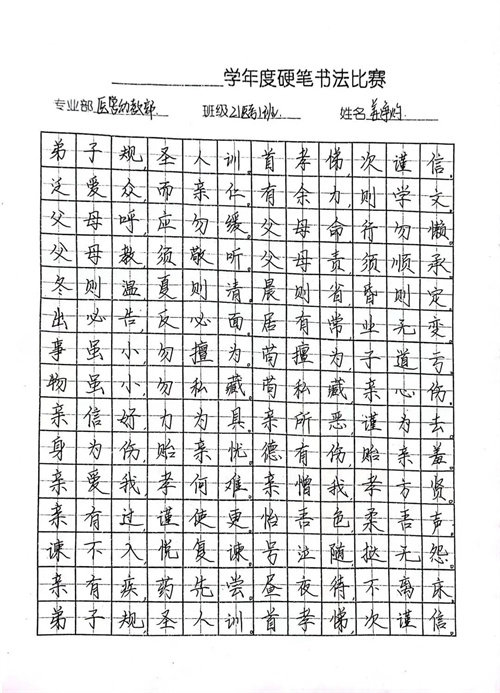 学年度硬笔书法比赛
专业部 医学幼教部 班级 21医1班 姓名
弟子规,圣人训。首孝悌,次谨信。
泛爱众,而亲仁。有余力,则学文。
父母呼,应勿缓。父母命,行勿懒。
父母教,须敬听。父母责,须顺承。
冬则温,夏则清。晨则省,昏则定。
出必告,反必面。居有常,业无变。
事虽小,勿擅为。苟擅为,子道亏。
物虽小,勿私藏。苟私藏,亲心伤。
亲信好,力为具。亲所恶,谨为去。
身为伤,贻亲忧。德有伤,贻亲羞。
亲爱我,孝何难。亲憎我,孝方贤。
亲有过,谨使更。怡吾色,柔吾声。
谏不入,悦复谏。号泣随,挞无怨。
亲有疾,药先尝。昼夜待,不离床。
弟子规,圣人训。首孝悌,次谨信。